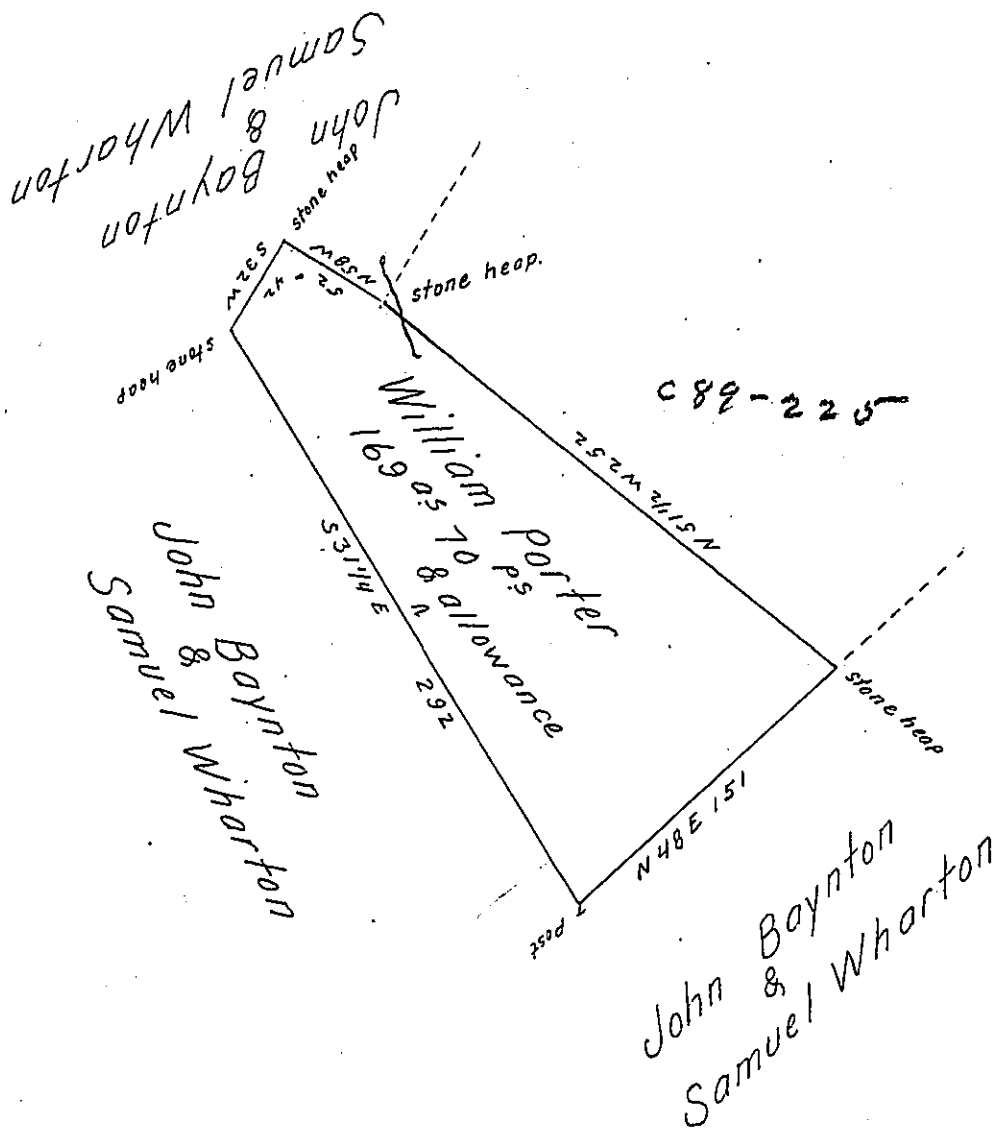 John Baynton
&
Samuel Wharton
stone heap
S 32 W
42
N 58 W
52
stone heap.
stone heap
C 89-225
William Porter
169 as 70 ps
& allowance
N 51 1/2 W 252
S 31 1/4 E
292
John Baynton
&
Samuel Wharton
stone heap
N 48 E 151
Post
John Baynton
&
Samuel Wharton